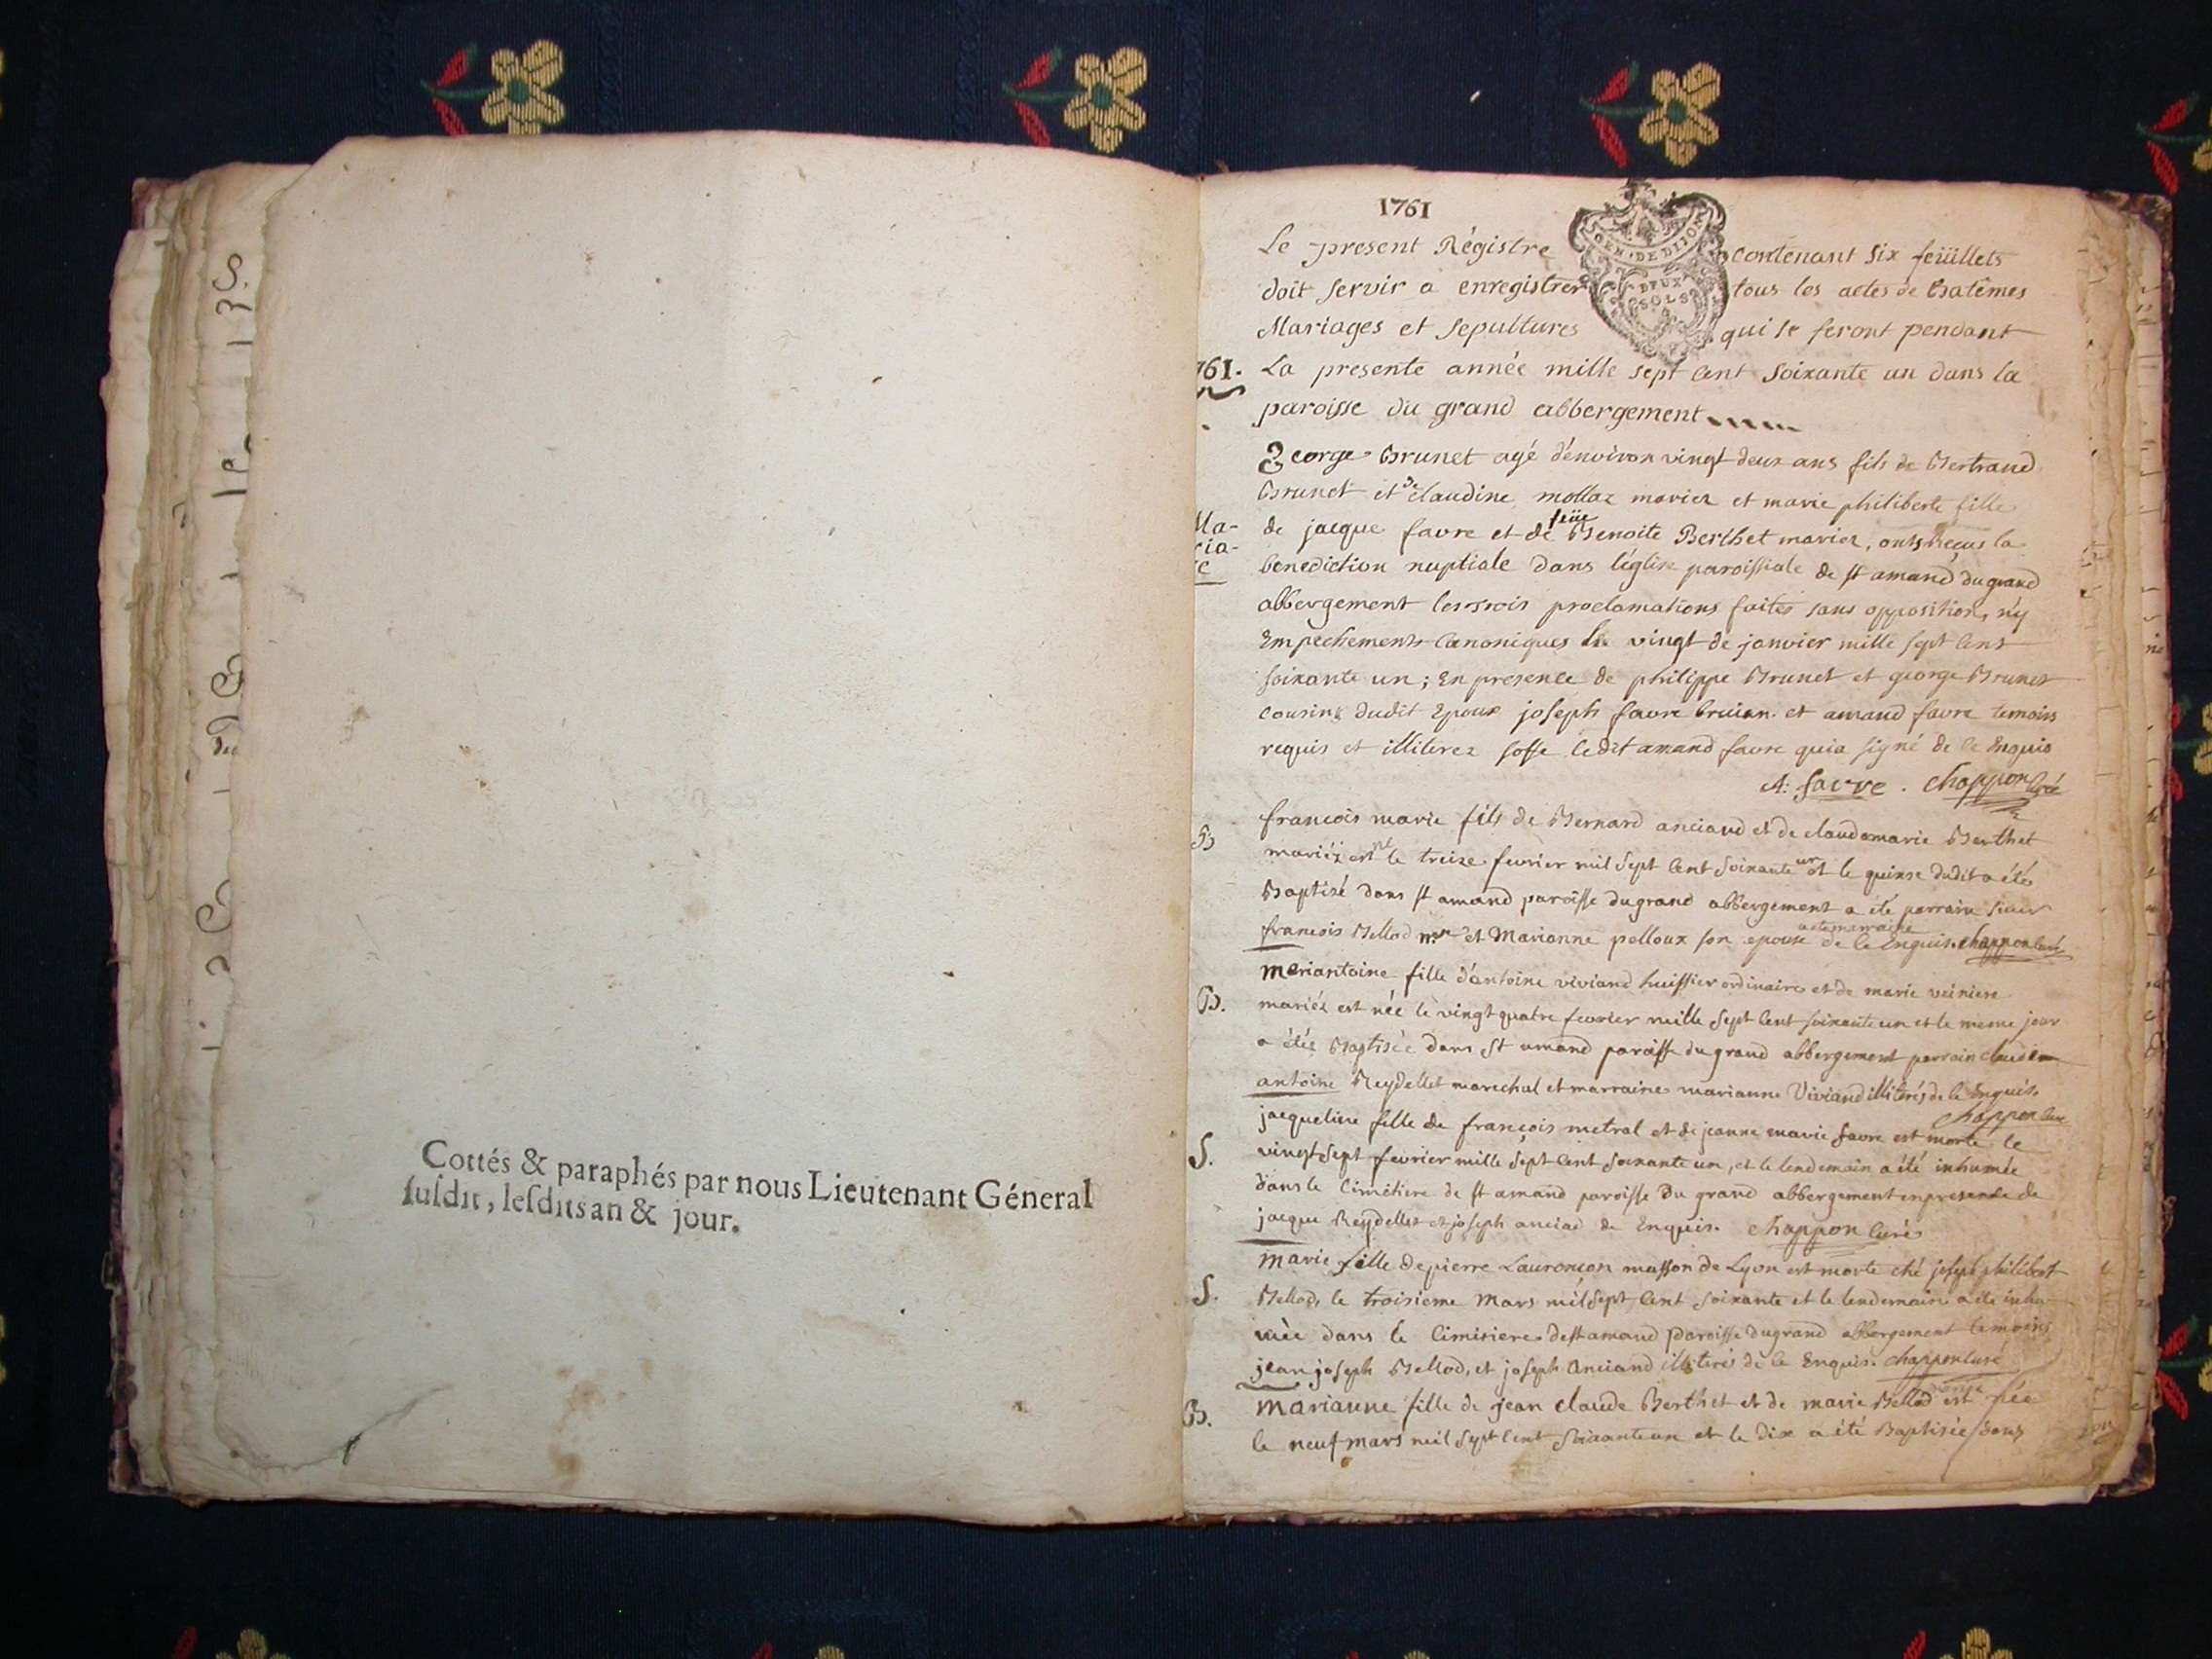 Cottés & paraphés par nous Lieutenant Géneral
susdit, lesdits an & jour.
1761
GEN · DE DIJON
DEUX
SOLS
Le present Régistre contenant six feüillets
doit servir a enregistrer tous les actes de Batêmes
Mariages et sepultures qui se feront pendant
761. La presente année mille sept cent soixante un dans la
paroisse du grand abbergement
George Brunet agé d'environ vingt deux ans fils de Bertrand
Brunet et de claudine mollaz mariez et marie philiberte fille
Ma- de jacque favre et de feüe Benoite Berthet mariez, onts reçus la
ria- benediction nuptiale dans l'église paroissiale de st amand du grand
ge abbergement les trois proclamations faites sans opposition, n'y
Empechements Canoniques le vingt de janvier mille sept cent
soixante un; En presence de philippe Brunet et george Brunet
cousins dudit Epoux joseph favre et amand favre temoins
requis et illiterez soffe ledit amand favre qui a signé de ce Enquis
A: favre. Chappon Curé
francois marie fils de Bernard anciand et de claudamarie Berthet
B mariéz est né le treize fevrier mil sept cent soixante un et le quinze dudit a étés
Baptizé dans st amand paroisse du grand abbergement a été parrain sieur
francois Mellod et Marianne pelloux son epouse de ce Enquis. chappon curé
Meriantoine fille d'antoine viviand huissier ordinaire et de marie veiniere
B. mariéz est née le vingt quatre fevrier mille sept cent soixante un et le meme jour
a étés Baptisée dans st amand paroisse du grand abbergement parrain claude
antoine Reydellet marechal et marraine marianne Viviand illiterés de ce Enquis.
Chappon Curé
jacqueline fille de francois metral et de jeanne marie favre est morte le
S. vingt sept fevrier mille sept cent soixante un, et le lendemain a été inhumée
dans le Cimétiere de st amand paroisse Du grand abbergement en presence de
jacque Reydellet et joseph anciad de Enquis. Chappon Curés
Marie fille de pierre Lauronçon masson de Lyon est morte ché joseph philibert
S. Mellod, le troisieme Mars mil sept Cent soixante et le lendemain a été inhu
mée dans le Cimitiere de st amand paroisse du grand abbergement temoins
jean joseph Mellod, et joseph Anciand illiterés de ce Enquis. chappon curé
B. Marianne fille de jean claude Berthet et de marie Mellod est née
le neuf mars mil sept cent soixante un et le dix a été Baptisée dans